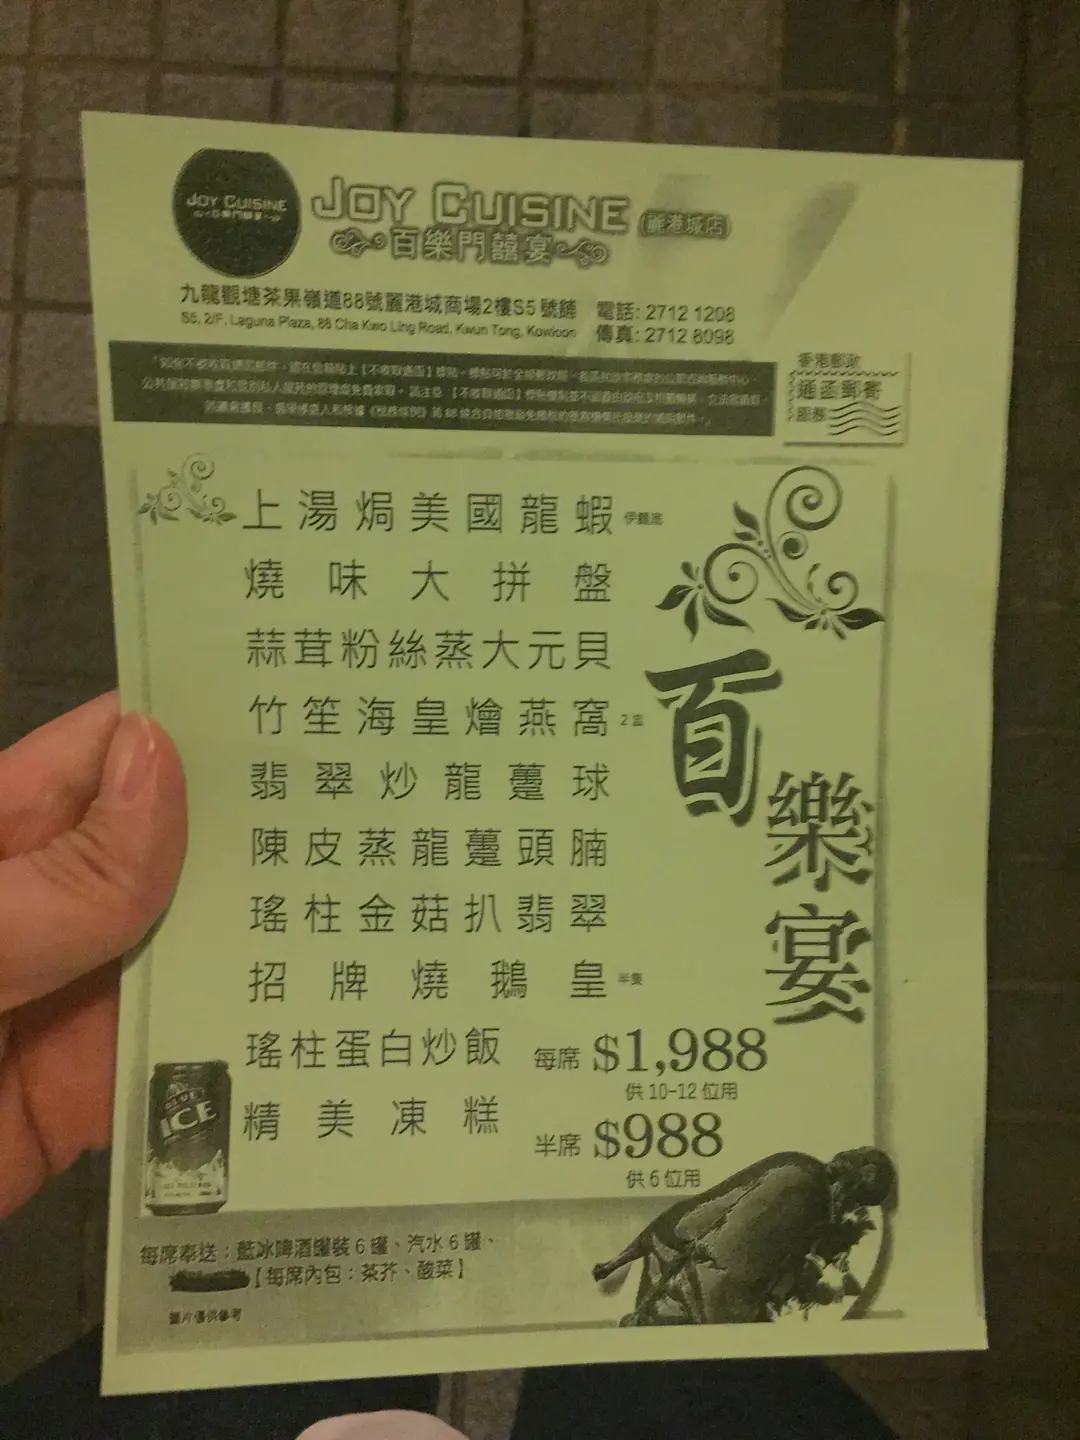 JOY CUISINE
JOY CUISINE (麗港城店)
百樂門囍宴
九龍觀塘茶果嶺道88號麗港城商場2樓S5號舖
電話: 2712 1208
S5, 2/F, Laguna Plaza, 88 Cha Kwo Ling Road, Kwun Tong, Kowloon
傳真: 2712 8098
香港郵政
通函郵寄
服務
上湯焗美國龍蝦 伊麵底
燒味大拼盤
蒜茸粉絲蒸大元貝
竹笙海皇燴燕窩
翡翠炒龍躉球
陳皮蒸龍躉頭腩
瑤柱金菇扒翡翠
招牌燒鵝皇 半隻
瑤柱蛋白炒飯
精美凍糕
百樂宴
每席 $1,988
供 10-12 位用
半席 $988
供 6 位用
BLUE
ICE
每席奉送：藍冰啤酒罐裝 6 罐、汽水 6 罐、
【每席內包：茶芥、酸菜】
圖片僅供參考